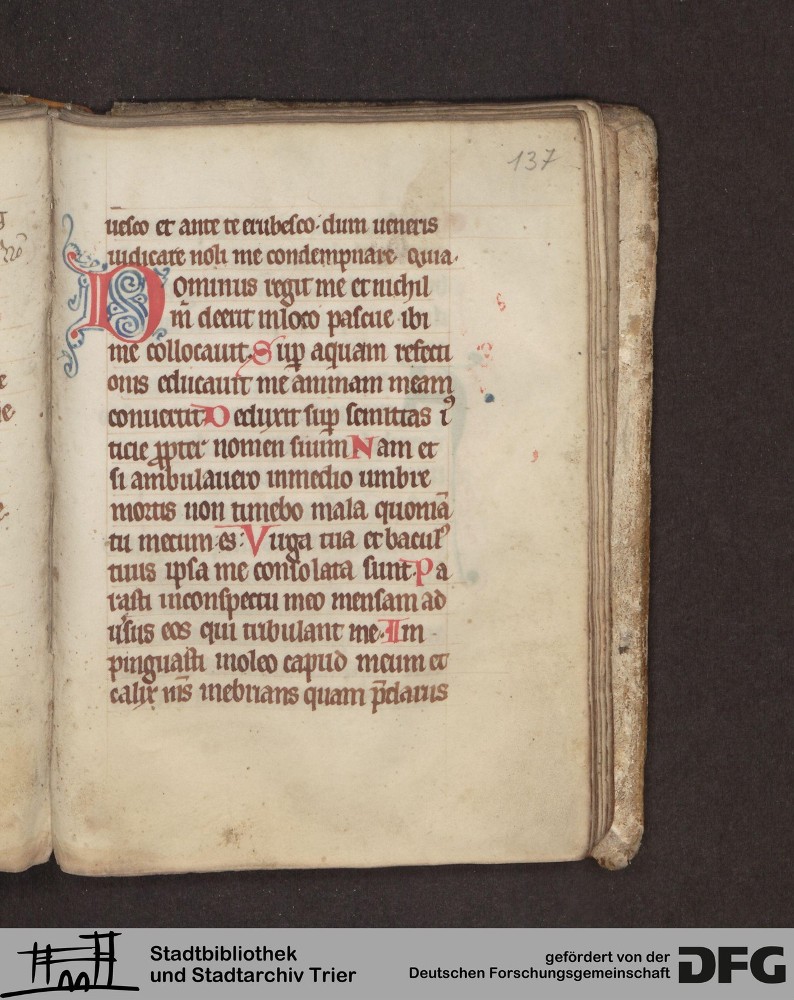 137
uesco et ante te erubesco· dum ueneris
iudicare noli me condempnare quia·
Dominus regit me et nichil
m̄ deerit in loco pascue ibi
me collocauit· Sup̄ aquam refecti
onis educauit me animam meam
conuertit Deduxit sup̄ semitas iꝰ
ticie ꝓpter nomen suum Nam et
si ambulauero in medio umbre
mortis non timebo mala quoniā
tu mecum es· Virga tua et baculꝰ
tuus ipsa me consolata sunt· Pa
rasti in conspectu meo mensam ad
u͛sus eos qui tribulant me· Im
pinguasti in oleo capud meum et
calix m̄s inebrians quam p̄clarus
Stadtbibliothek
und Stadtarchiv Trier
gefördert von der
Deutschen Forschungsgemeinschaft
DFG